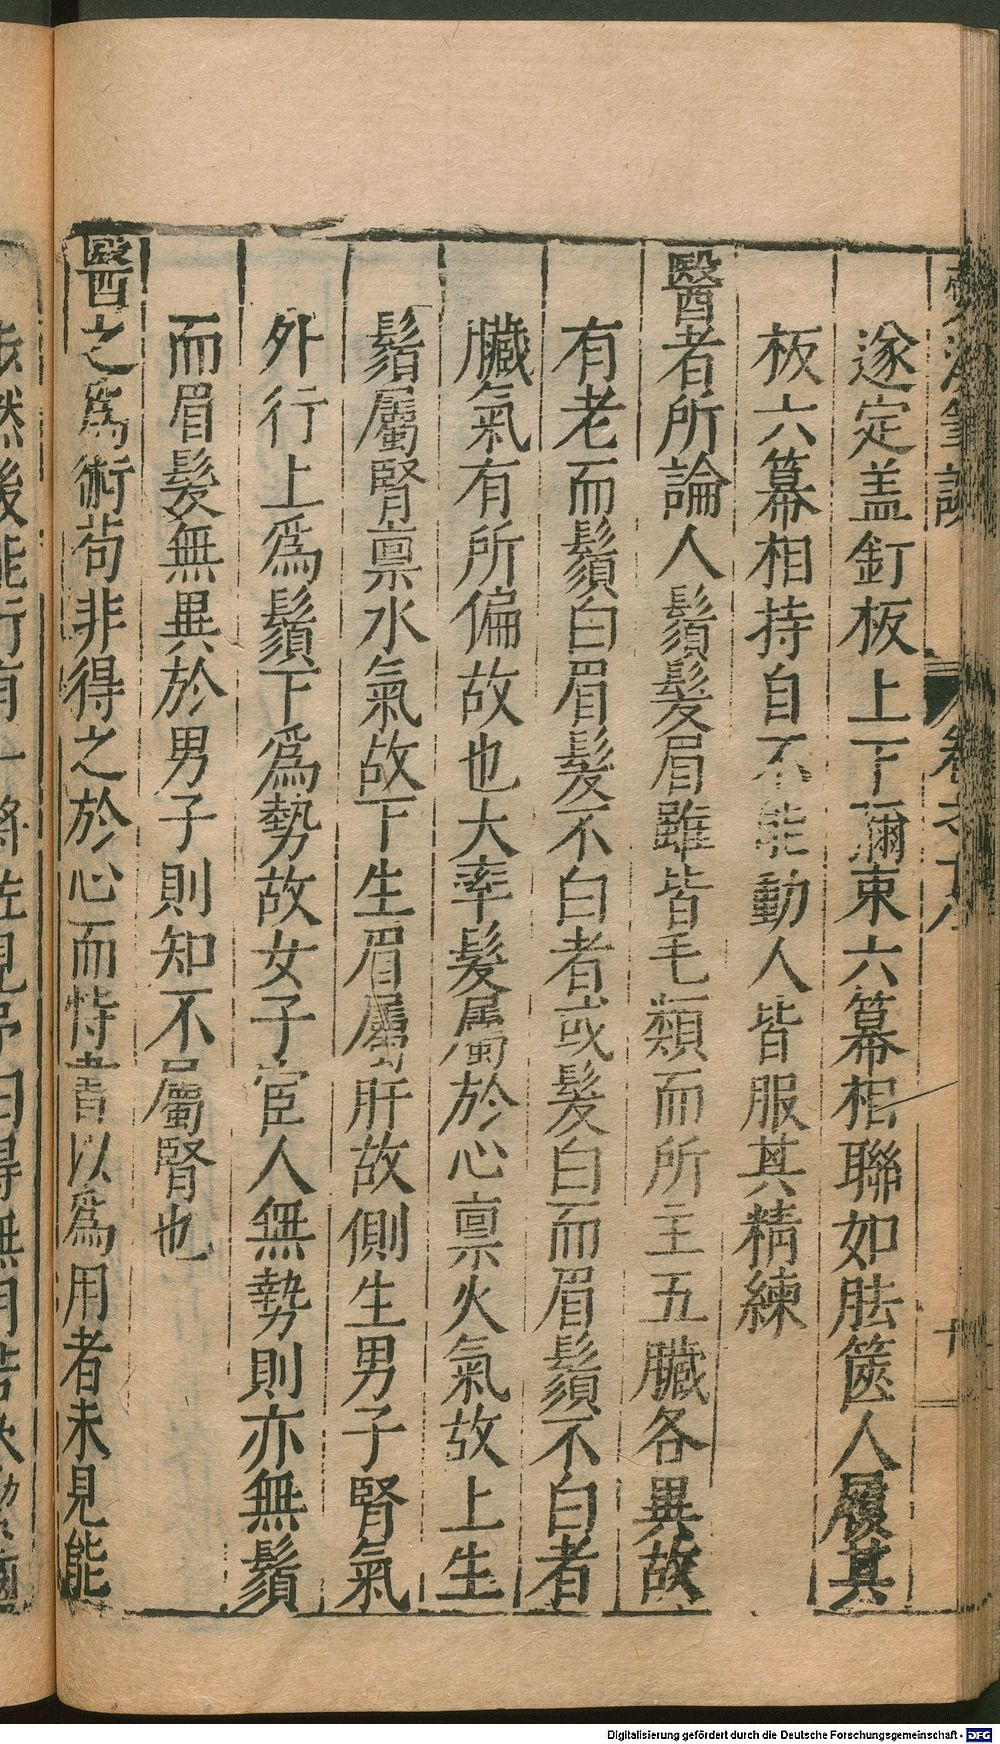 夢溪筆談 卷之十八 十
遂定盖釘板上下彌束六幕相聯如胠篋人履其
板六幕相持自不能動人皆服其精練
醫者所論人鬚髮眉雖皆毛類而所主五臟各異故
有老而鬚白眉髮不白者或髮白而眉鬚不白者
臟氣有所偏故也大率髮屬於心禀火氣故上生
鬚屬腎禀水氣故下生眉屬肝故側生男子腎氣
外行上爲鬚下爲勢故女子宦人無勢則亦無鬚
而眉髮無異於男子則知不屬腎也
醫之爲術茍非得之於心而恃書以爲用者未見能
然後能行有一將佐見予曰得無用
Digitalisierung gefördert durch die Deutsche Forschungsgemeinschaft - DFG